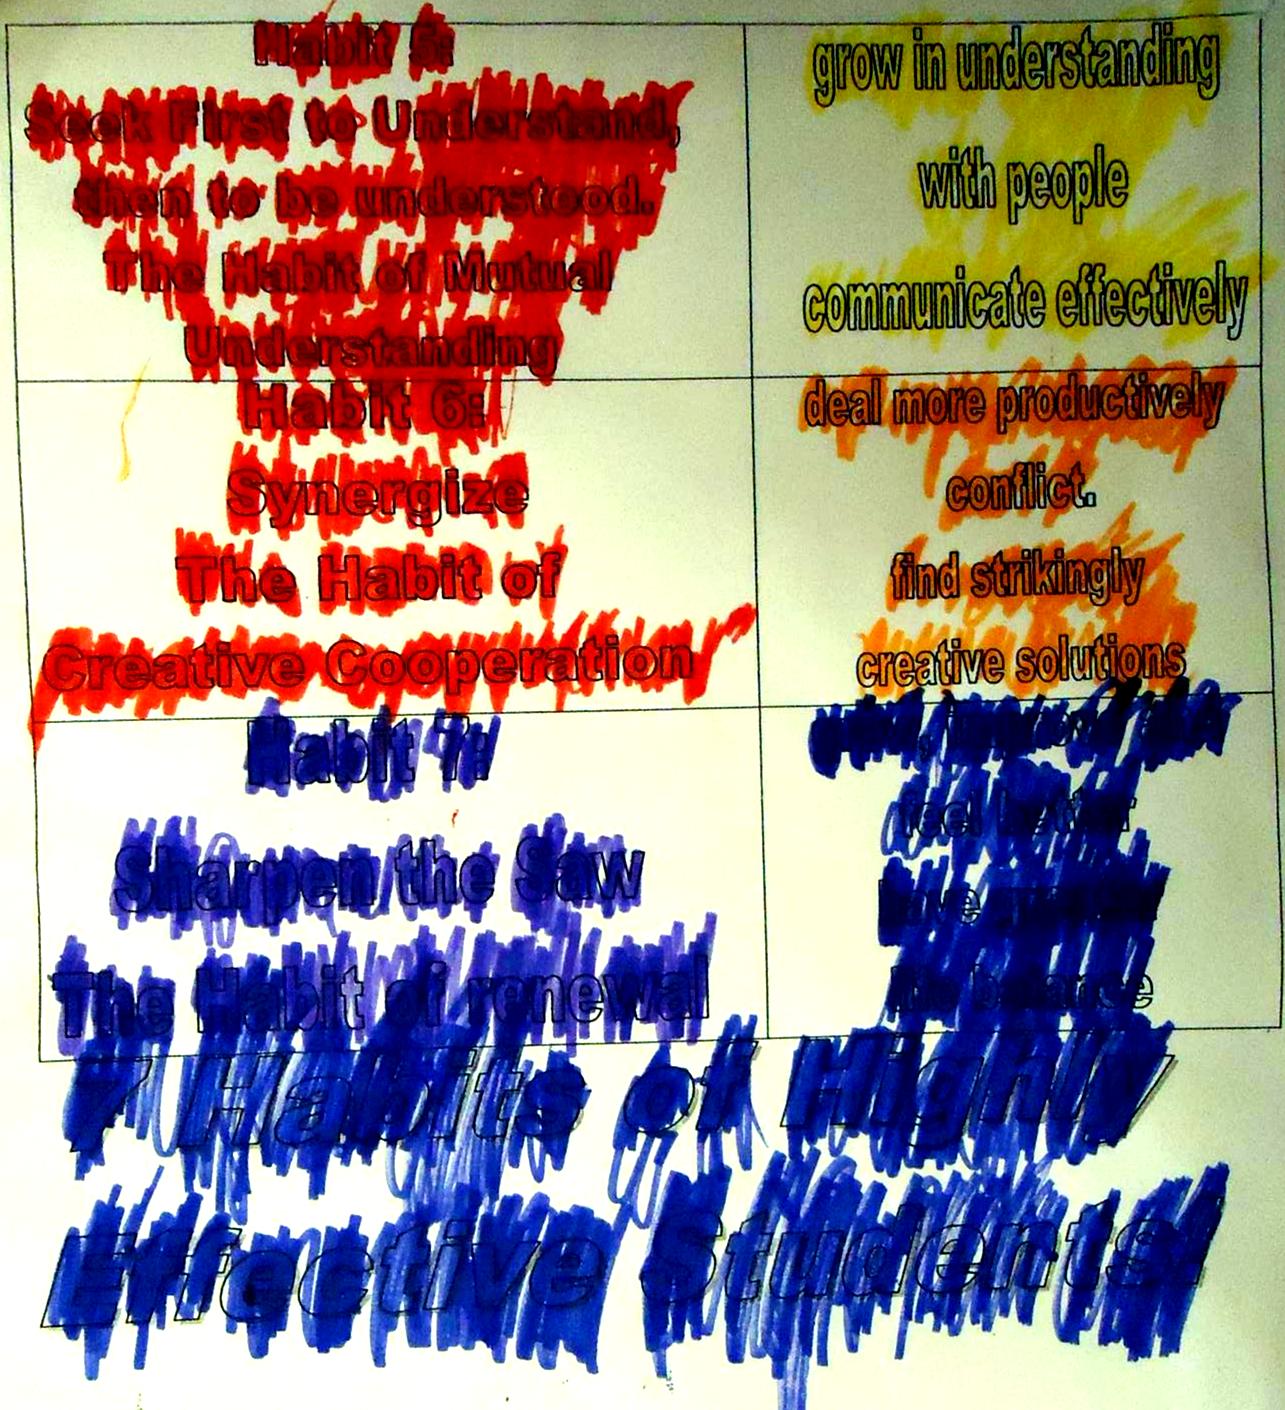 Habit 5:
Seek First to Understand,
then to be understood.
The Habit of Mutual
Understanding
grow in understanding
with people
communicate effectively
Habit 6:
Synergize
The Habit of
Creative Cooperation
deal more productively
conflict.
find strikingly
creative solutions
Habit 7:
Sharpen the Saw
The Habit of renewal
feel better
balance
7 Habits of Highly
Effective Students!